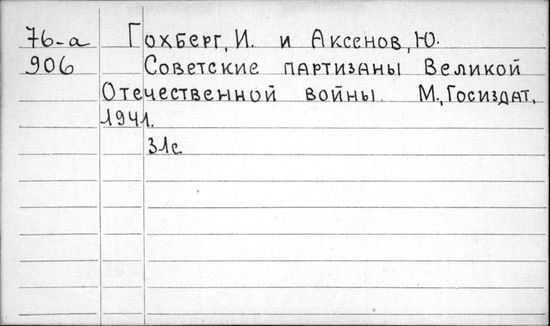 76-а Гохберг, И. и Аксенов, Ю.
906 Советские партизаны Великой
Отечественной войны. М., Госиздат,
1941.
31с.